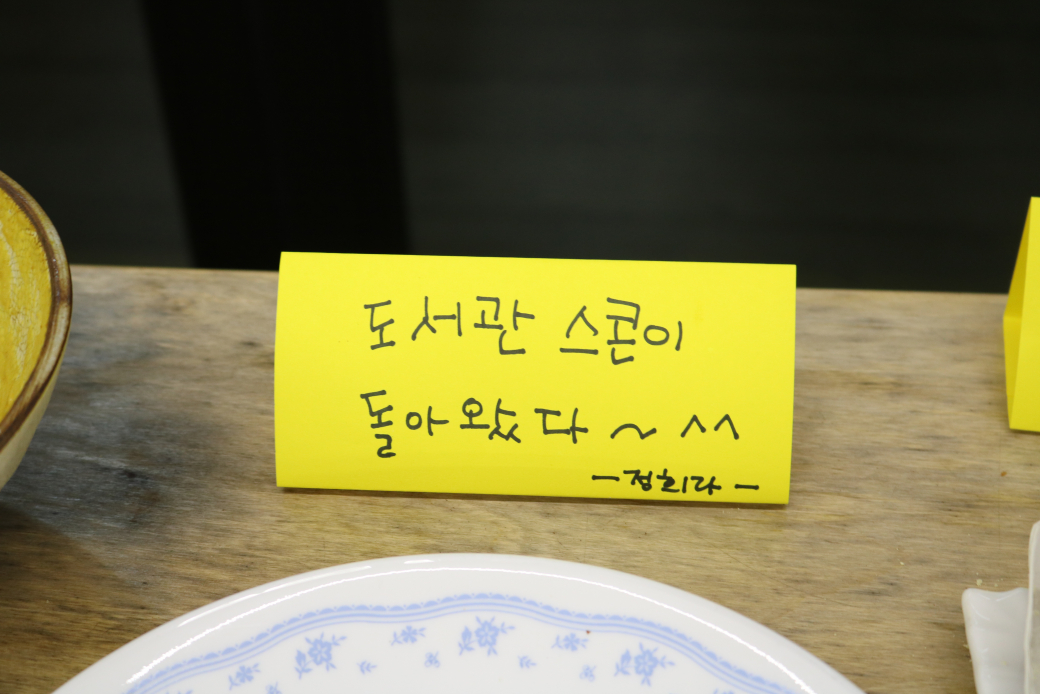 도서관 스콘이
돌아왔다~ ^^
-정희라-